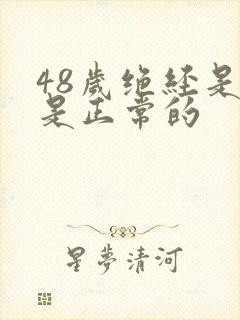 48歲绝经是
是正常的
星夢清河